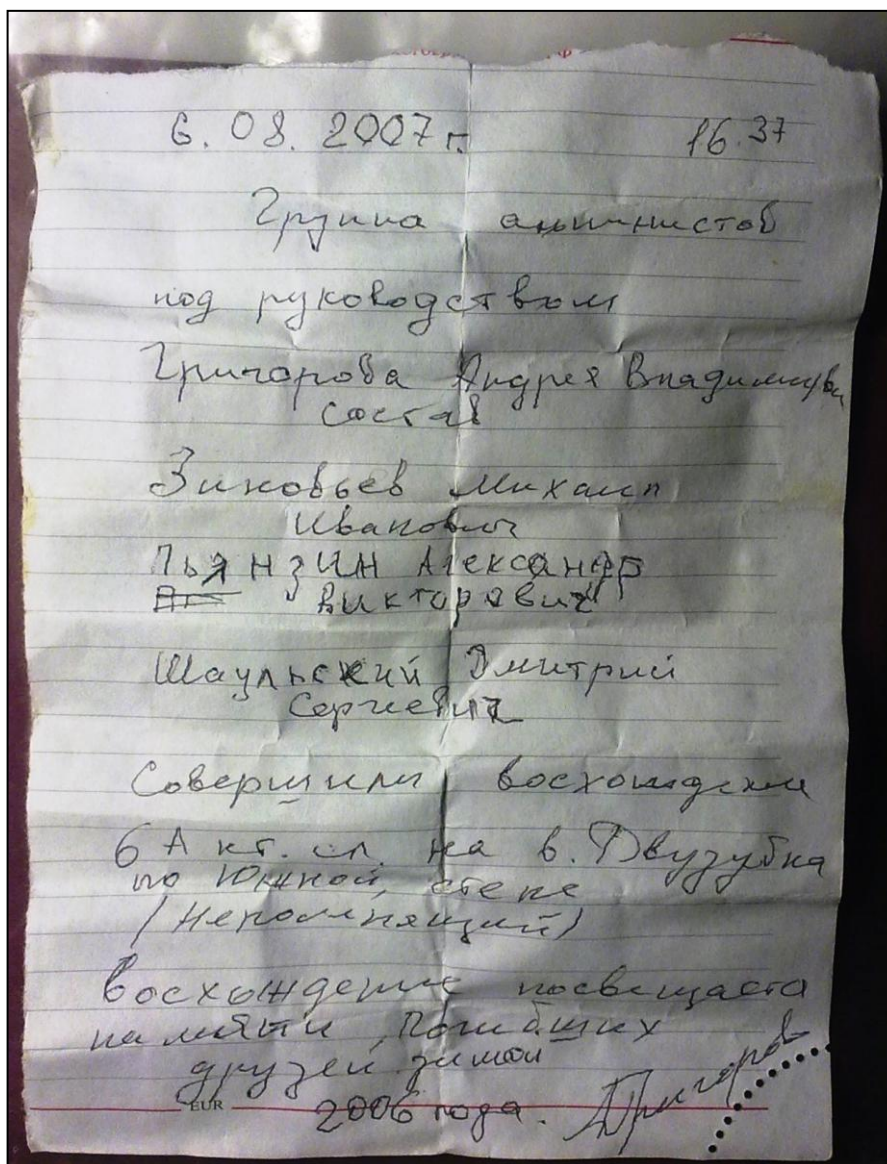 6. 08. 2007 г. 16.37
Группа альпинистов
под руководством
Григорова Андрея Владимирови
Состав
Зиновьев Михаил
Иванович
Пьянзин Александр
Викторович
Шаульский Дмитрий
Сергеевич
Совершили восхождение
6 А кт. сл. на в. Двузубка
по Южной стене
(Непомнящий)
Восхождение посвещаста
памяти погибших
друзей зимой
2006 года. Григоров
EUR